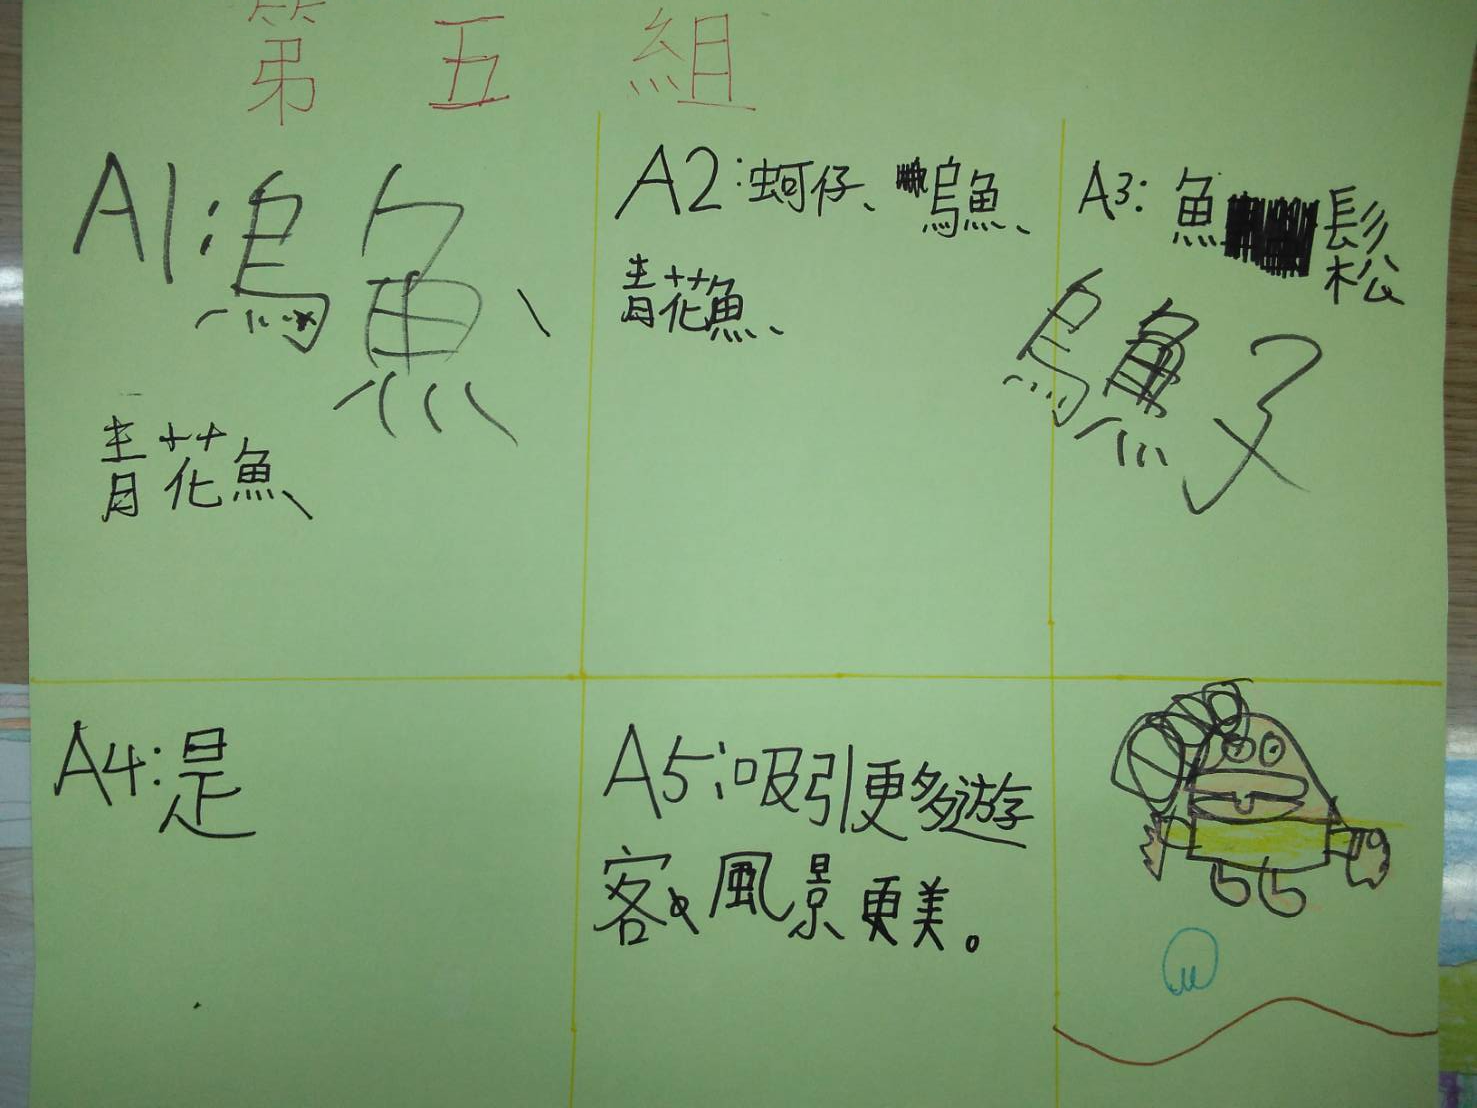 第五組
A1:烏魚、
青花魚、
A2:蚵仔、烏魚、
青花魚、
A3:魚鬆
烏魚子
A4:是
A5:吸引更多遊
客、風景更美。